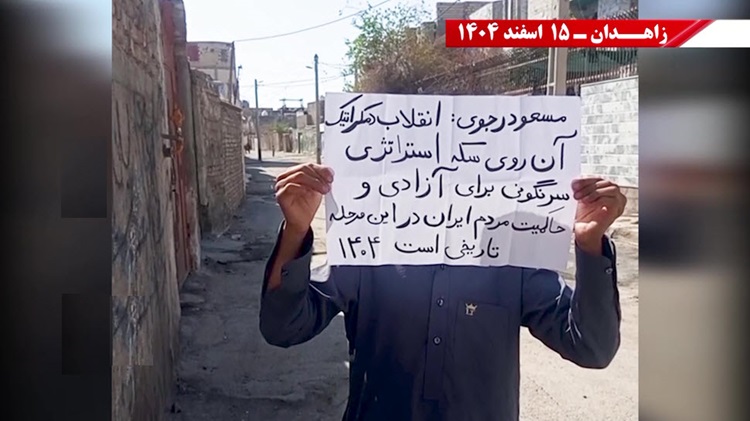 زاهـدان ـ ۱۵ اسفند ۱۴۰۴
مسعود رجوی: انقلاب دمکراتیک
آن روی سکه استراتژی
سرنگونی برای آزادی و
حاکمیت مردم ایران در این مرحله
تاریخی است ۱۴۰۴